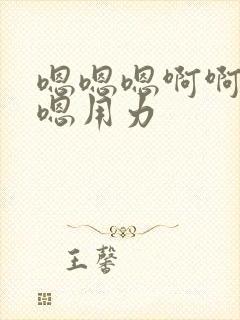 嗯嗯嗯啊啊
嗯用力
王馨